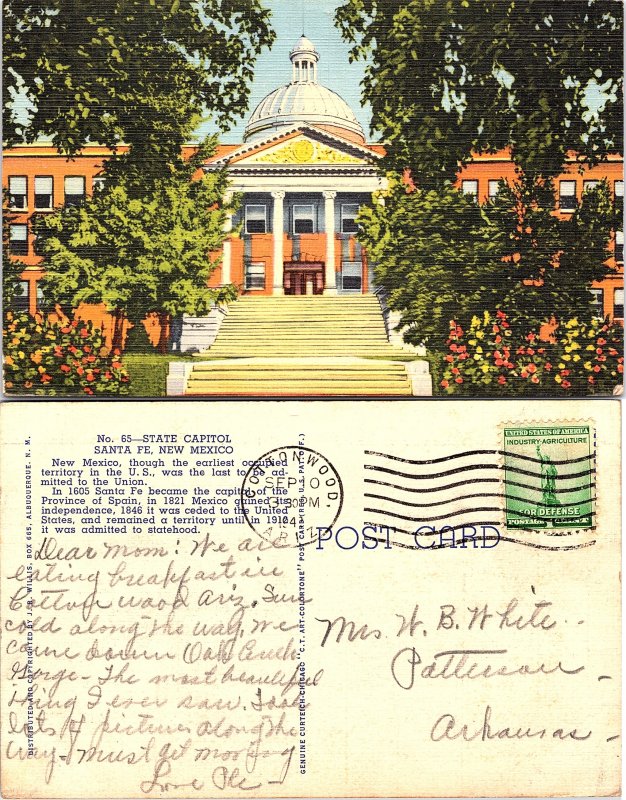 No. 65—STATE CAPITOL
SANTA FE, NEW MEXICO
New Mexico, though the earliest occupied
territory in the U.S., was the last to be ad-
mitted to the Union.
In 1605 Santa Fe became the capitol of the
Province of Spain, in 1821 Mexico gained its
independence, 1846 it was ceded to the United
States, and remained a territory until in 1914
it was admitted to statehood.
Dear Mom: We are
eating breakfast in
Cotton wood Ariz. Sure
cold along the way. We
came down Oak Creek
Gorge - The most beautiful
thing I ever saw. Took
lots of pictures along the
way - must get moving
Love
DISTRIBUTED AND COPYRIGHTED BY J. R. WILLIS, BOX 665, ALBUQUERQUE, N. M.
GENUINE CURTEICH-CHICAGO "C.T. ART-COLORTONE" POST CARD (REG. U.S. PAT. OFF.)
COTTONWOOD,
SEP 10
PM
ARIZ.
POST CARD
UNITED STATES OF AMERICA
INDUSTRY-AGRICULTURE
FOR DEFENSE
POSTAGE
Mrs. W. B. White -
Patterson -
Arkansas -